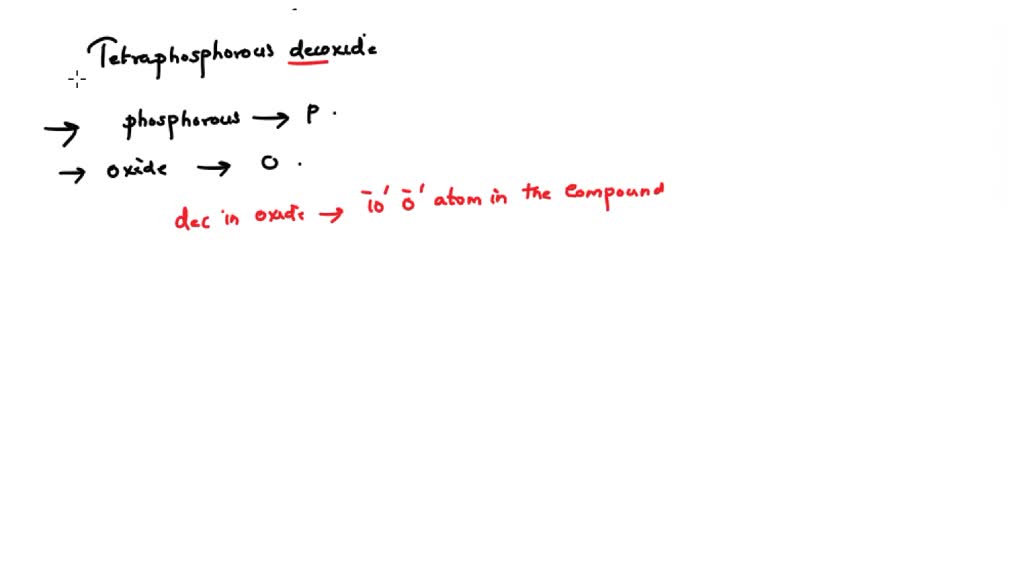 Tetraphosphorous decoxide
→ phosphorous → P .
→ oxide → O .
dec in oxide → '10' 'O' atom in the compound